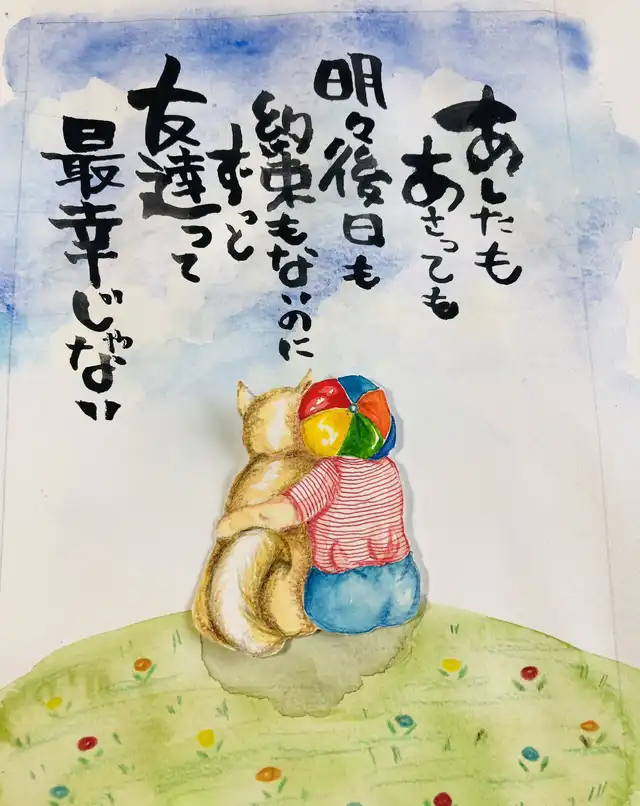 あしたも
あさっても
明々後日も
約束もないのに
ずっと
友達って
最幸じゃない